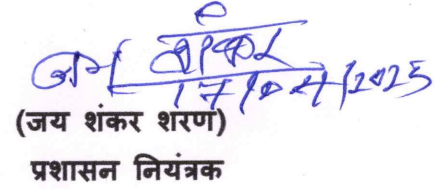 जय शंकर
17/04/2025
(जय शंकर शरण)
प्रशासन नियंत्रक